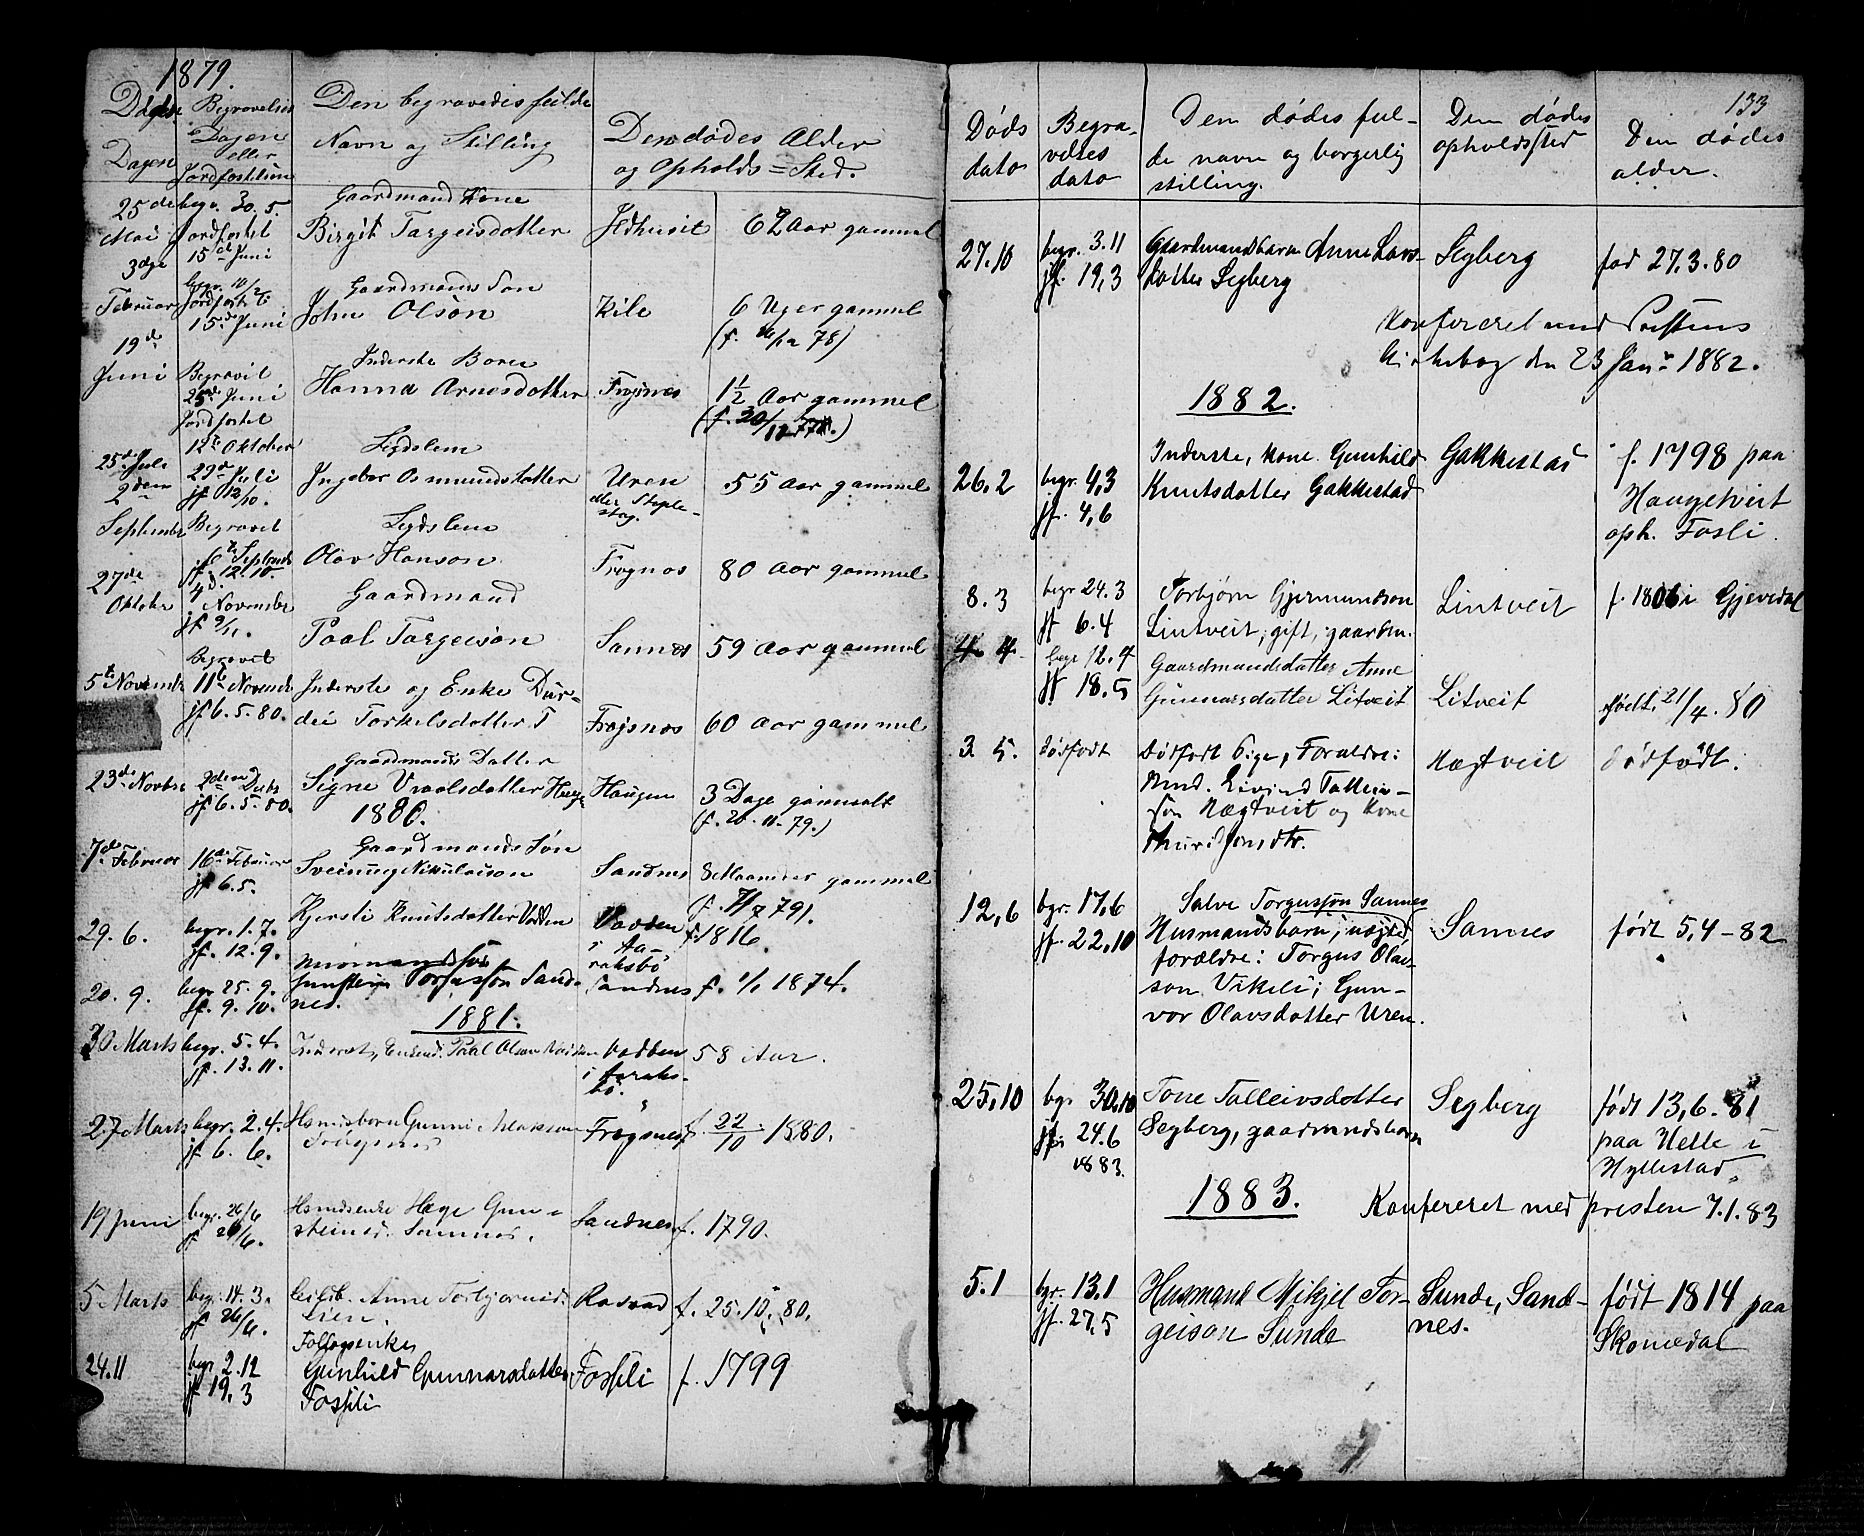 1879.
Døds Begravelses Den begravedes fulde
Dagen Dagen eller Jordfæstelsen Navn og Stilling Den dødes Alder
og Opholds=Sted.
25de Mai begr. 30. 5. Jordfæstet 15de Juni
Gaardmand Kone
Birgit Targeisdotter Jldhusit 62 Aar gammel
3dje Februar begr. 10/2 Jordfæstet 15de Juni
Gaardmands Søn
John Olson Kile 6 Uger gammel
(f. 78)
19de Juni Begravet 25de Juni Jordfæstet 12te Oktober
Inderste Barn
Hanna Arnesdotter Frøjsnes 1½ Aar gammel
25de Juli 29de Juli jf 12/10.
Legdslem
Ingebor Osmundsdotter Uren 55 Aar gammel
eller
2den September Begravet September jf. 12.10.
Legdslem
Olav Hanson Frøgnes 80 Aar gammel
27de Oktober 4d. November jf 9/11.
Gaardmand
Paal Targeison Sannes 59 Aar gammel
5te November Begravet 11te Novembr jf 6. 5. 80.
Inderste og Enke Dur-
dei Torkelsdotter Frøjsnes 60 Aar gammel
23de Novbr 2den Decbr jf 6. 5. 80.
Gaardmands Datter
Signe Vraalsdotter Haugen 3 Dage gammelt
(f. 20. 11. 79.)
1880.
7de Februar 16de Februar jf 6. 5.
Gaardmands Søn
Sveinung Nikulaison Sandnes 8 Maaneder gammel
29. 6. begr. 1. 7. jf. 12. 9.
Kjersti Knutsdotter Vadden Vadden i Aa-
raksbø f. 1816.
20. 9. begr 25. 9. jf. 9. 10.
Gunstein Torgusson Sand-
nes. Sandnes f. 1/1 1874.
1881.
30 Marts begr. 5. 4. jf. 13. 11.
Inderst, Paal Olson Vadden i Aaraks-
bø. 58 Aar.
27 Marts begr. 2. 4. jf 6. 6.
Gunni Frøgsnes f. 22/10 1880.
19 Juni begr. 26/6 jf 26/6.
Hsmdsenke Hæge Gun-
steinsd. Sannes. Sandnes f. 1790.
5 Marts begr. 11. 3. jf 26/6.
Anne Torbjørnsd.
Lien. f. 25. 10. 80.
24. 11 begr 2. 12 jf. 19. 3
Gunhild Gunnarsdotter
Fossli Fossli f. 1799
133
Døds dato Begra-velses dato Den dødes ful-
de navn og borgerlig
stilling. Den dødes opholdssted Den dødes
alder.
27. 10 begr. 3. 11 jf. 19, 3
Gaardmandsbarn Anne Lars-
dotter Segberg Segberg fød 27. 3. 80
Konfereret med Prestens
Kirkebog den 23 Jan. 1882.
1882.
26. 2 begr. 4, 3 jf. 4, 6
Inderste, kone. Gunhild
Knutsdotter Gakkestad Gakkestad f. 1798 paa
Haugetveit
oph. Fosli.
8. 3 begr 24. 3 jf 6. 4
Torbjørn Gjermundson
Lintveit, gift, gaardm. Lintveit f. 1806 i Gjøvedal
4. 4 begr 12. 4 jf 18. 5
Gaardmandsdatter Anne
Gunnarsdotter Litveit Litveit født. 21/4. 80
3. 5. dødfødt
Dødfødt Pige, Forældre:
Eivind Tallein-
son Nægtveit og Kone
Nægtveit dødfødt.
12, 6 bgr. 17, 6 jf. 22, 10
Salve Torgusson Sannes
Husmandsbarn,
forældre: Torgus Olav-
son Vikeli; Gun-
vor Olavsdotter Uren. Sannes født 5, 4 - 82
25, 10 bgr 30, 10 jf. 24. 6 1883.
Tone Talleivsdotter
Segberg, gaardmandsbarn Segberg født 13, 6. 81
paa Helle i
Hyllestad
1883. Konfereret med presten 7. 1. 83
5. 1 bgr. 13. 1 jf. 27, 5
Husmand Mikjel Tor-
geison Sunde Sunde, Sand-
nes. født 1814 paa
Skomedal